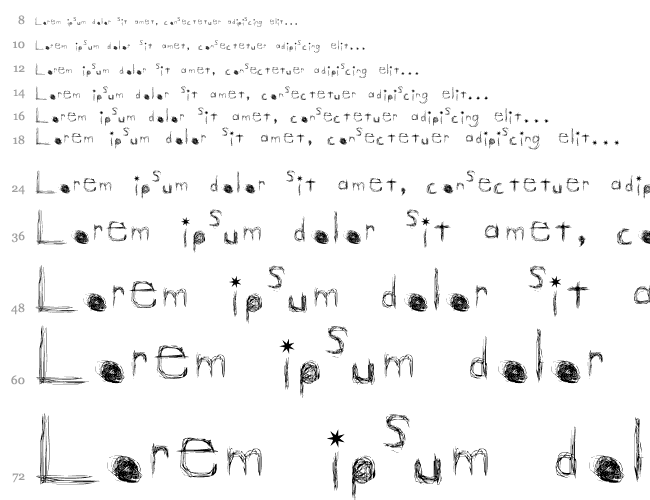 8 Lorem ipSum dolor Sit amet, conSectetuer adipiScing elit...
10 Lorem ipSum dolor Sit amet, conSectetuer adipiScing elit...
12 Lorem ipSum dolor Sit amet, conSectetuer adipiScing elit...
14 Lorem ipSum dolor Sit amet, conSectetuer adipiScing elit...
16 Lorem ipSum dolor Sit amet, conSectetuer adipiScing elit...
18 Lorem ipSum dolor Sit amet, conSectetuer adipiScing elit...
24 Lorem ipSum dolor Sit amet, conSectetuer adip
36 Lorem ipSum dolor Sit amet, co
48 Lorem ipSum dolor Sit a
60 Lorem ipSum dolor
72 Lorem ipSum dol